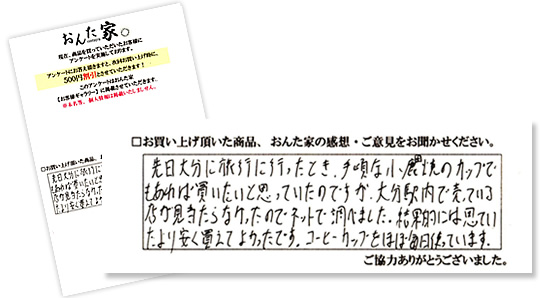 おんた家。
現在、商品を買っていただいたお客様に
アンケートを実施しております。
アンケートにお答え頂きますと、次回お買い上げ時に、
500円割引とさせていただきます！
このアンケートはおんた家
【お客様ギャラリー】に掲載させていただきます。
※お名前、個人情報は掲載いたしません。
□お買い上げ頂いた商品、おんた家の感想・ご意見をお聞かせください。
先日大分に旅行に行ったとき、手頃な小鹿焼のカップで
もあれば買いたいと思っていたのですが、大分駅内で売っている
店が見当たらなかったのでネットで調べました。結果的には思ってい
たより安く買えてよかったです。コーヒーカップをほぼ毎日使っています。
ご協力ありがとうございました。
□お買い上げ頂いた商品、
先日大分に旅行に行
もあれば買いたいと思っ
店が見当たらなかったの
たより安く買えてよか